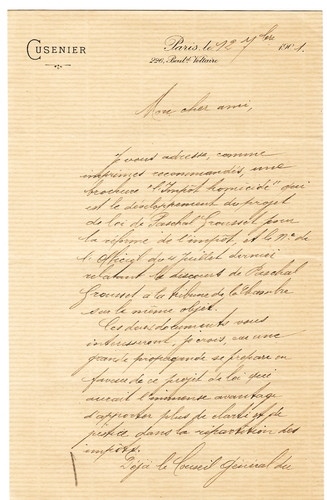 CUSENIER
Paris, le 12 7bre 1901.
226, Boul.d Voltaire
Mon cher ami,
Je vous adresse, comme
imprimés recommandés, une
brochure "l'Impôt homicide" qui
est le développement du projet
de loi de Paschal Grousset pour
la réforme de l'impôt, et le No de
l'Officiel du 4 juillet dernier
relatant le discours de Paschal
Grousset à la tribune de la Chambre
sur le même objet.
Ces deux documents vous
intéresseront, je crois, car une
grande propagande se prépare en
faveur de ce projet de loi qui
aurait l'immense avantage
d'apporter plus de clarté et de
justice dans la répartition des
impôts.
Déjà le Conseil Général du